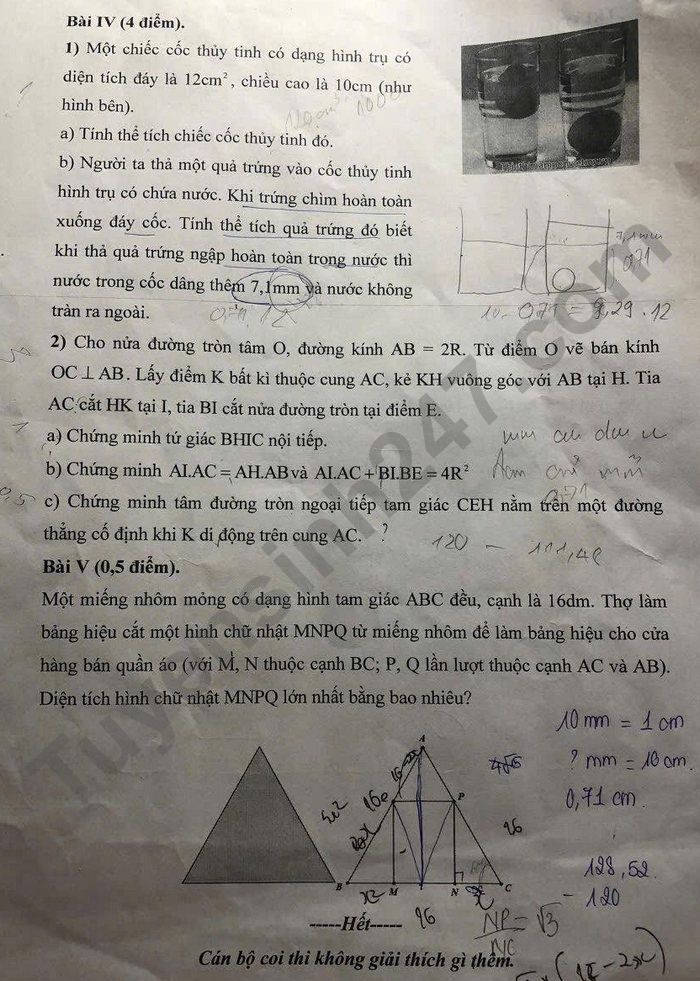 Bài IV (4 điểm).
1) Một chiếc cốc thủy tinh có dạng hình trụ có
diện tích đáy là 12cm², chiều cao là 10cm (như
hình bên).
a) Tính thể tích chiếc cốc thủy tinh đó.
b) Người ta thả một quả trứng vào cốc thủy tinh
hình trụ có chứa nước. Khi trứng chìm hoàn toàn
xuống đáy cốc. Tính thể tích quả trứng đó biết
khi thả quả trứng ngập hoàn toàn trong nước thì
nước trong cốc dâng thêm 7,1mm và nước không
tràn ra ngoài.
7,1mm
0,71
0,71.12
10-0,71 = 9,29.12
2) Cho nửa đường tròn tâm O, đường kính AB = 2R. Từ điểm O vẽ bán kính
OC ⊥ AB. Lấy điểm K bất kì thuộc cung AC, kẻ KH vuông góc với AB tại H. Tia
AC cắt HK tại I, tia BI cắt nửa đường tròn tại điểm E.
a) Chứng minh tứ giác BHIC nội tiếp.
b) Chứng minh AI.AC = AH.AB và AI.AC + BI.BE = 4R²
0,71
0,5
c) Chứng minh tâm đường tròn ngoại tiếp tam giác CEH nằm trên một đường
thẳng cố định khi K di động trên cung AC. ?
120 - 111,48
Bài V (0,5 điểm).
Một miếng nhôm mỏng có dạng hình tam giác ABC đều, cạnh là 16dm. Thợ làm
bảng hiệu cắt một hình chữ nhật MNPQ từ miếng nhôm để làm bảng hiệu cho cửa
hàng bán quần áo (với M, N thuộc cạnh BC; P, Q lần lượt thuộc cạnh AC và AB).
Diện tích hình chữ nhật MNPQ lớn nhất bằng bao nhiêu?
10mm = 1cm
? mm = 10cm.
0,71 cm.
A
P
B
M
N
C
x
128,52
- 120
-----Hết-----
NP/NC = √3
Cán bộ coi thi không giải thích gì thêm.
Tuyensinh247.com